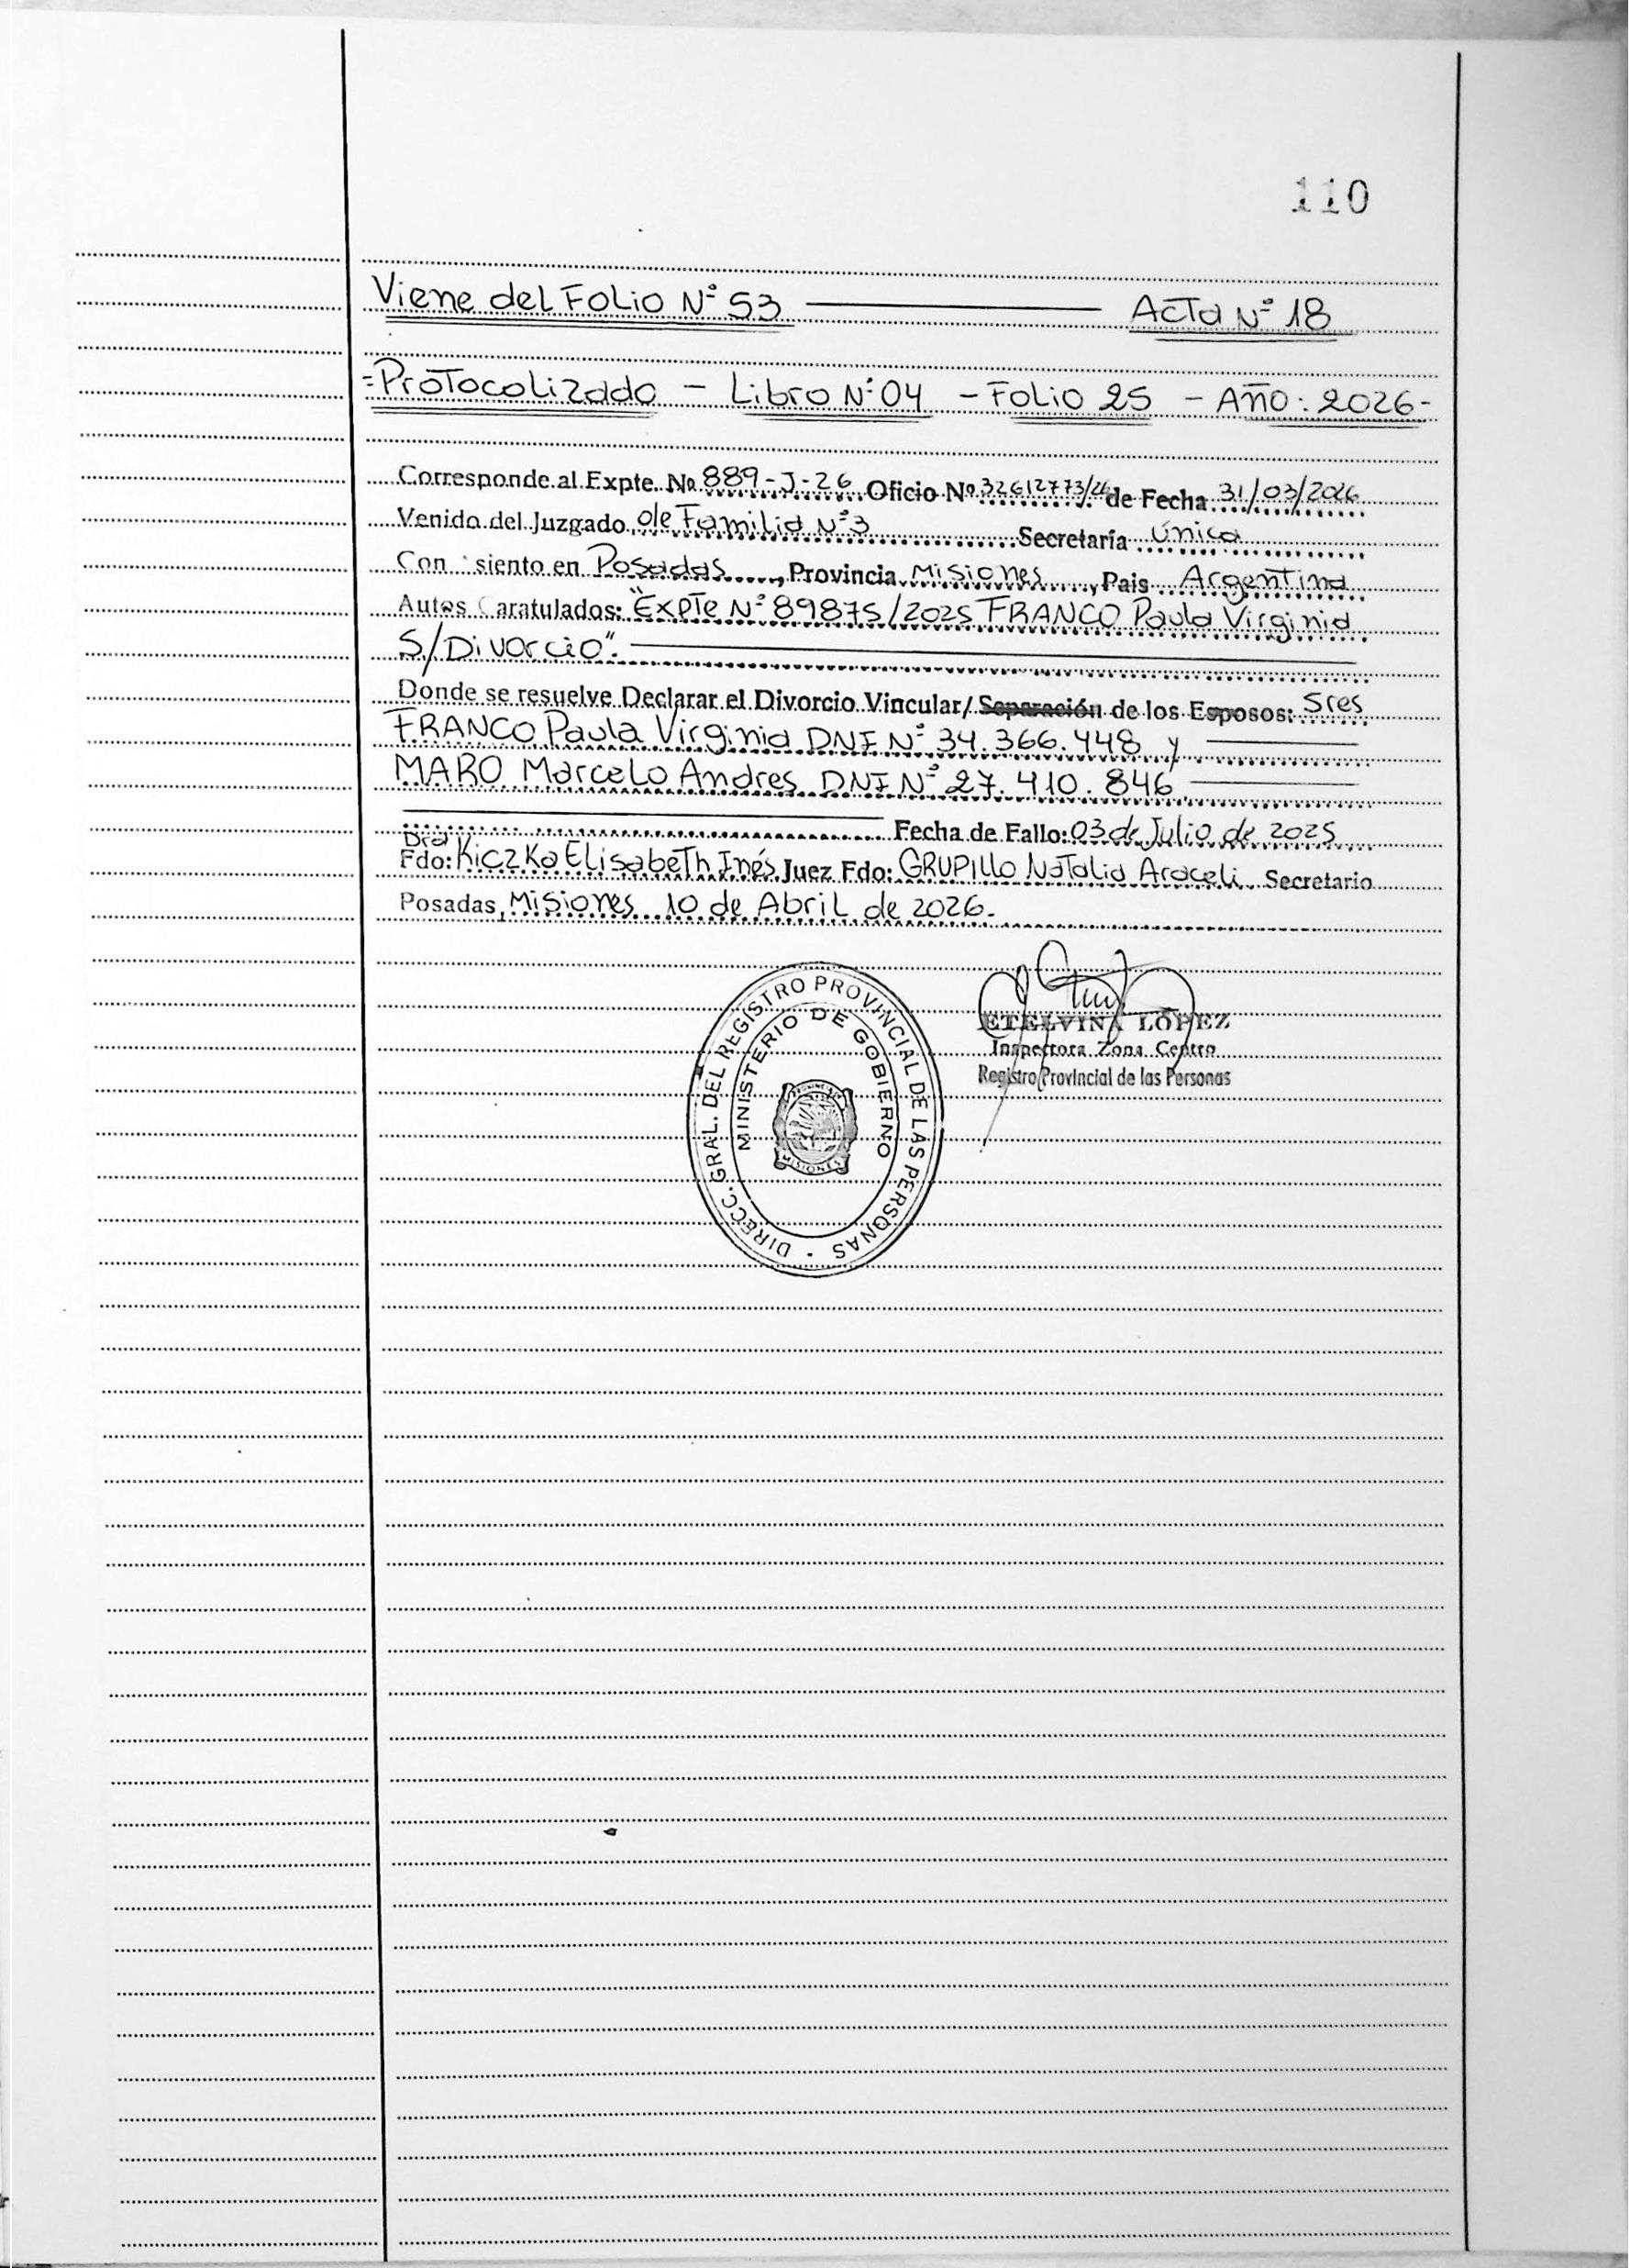 110
Viene del Folio Nº 53 Acta Nº 18
=Protocolizado - Libro Nº 04 - Folio 25 - Año: 2026-
Corresponde al Expte. Nº 889-J-26 Oficio Nº 32612773/26 de Fecha 31/03/2026
Venido del Juzgado de Familia Nº 3 Secretaría Única
Con siento en Posadas, Provincia Misiones, Pais Argentina
Autos Caratulados: "Expte Nº 89875/2025 FRANCO Paula Virginia
S/Divorcio".
Donde se resuelve Declarar el Divorcio Vincular/ Separación de los Esposos: Sres
FRANCO Paula Virginia DNI Nº 34.366.448 y
MARO Marcelo Andres DNI Nº 27.410.846
Fecha de Fallo: 03 de Julio de 2025
Dra
Fdo: Kiczka Elisabeth Inés Juez Fdo: GRUPILLO Natalia Araceli Secretario
Posadas, Misiones 10 de Abril de 2026.
DIRECC. GRAL. DEL REGISTRO PROVINCIAL DE LAS PERSONAS
MINISTERIO DE GOBIERNO
MISIONES
ETELVINA LÓPEZ
Inspectora Zona Centro
Registro Provincial de las Personas